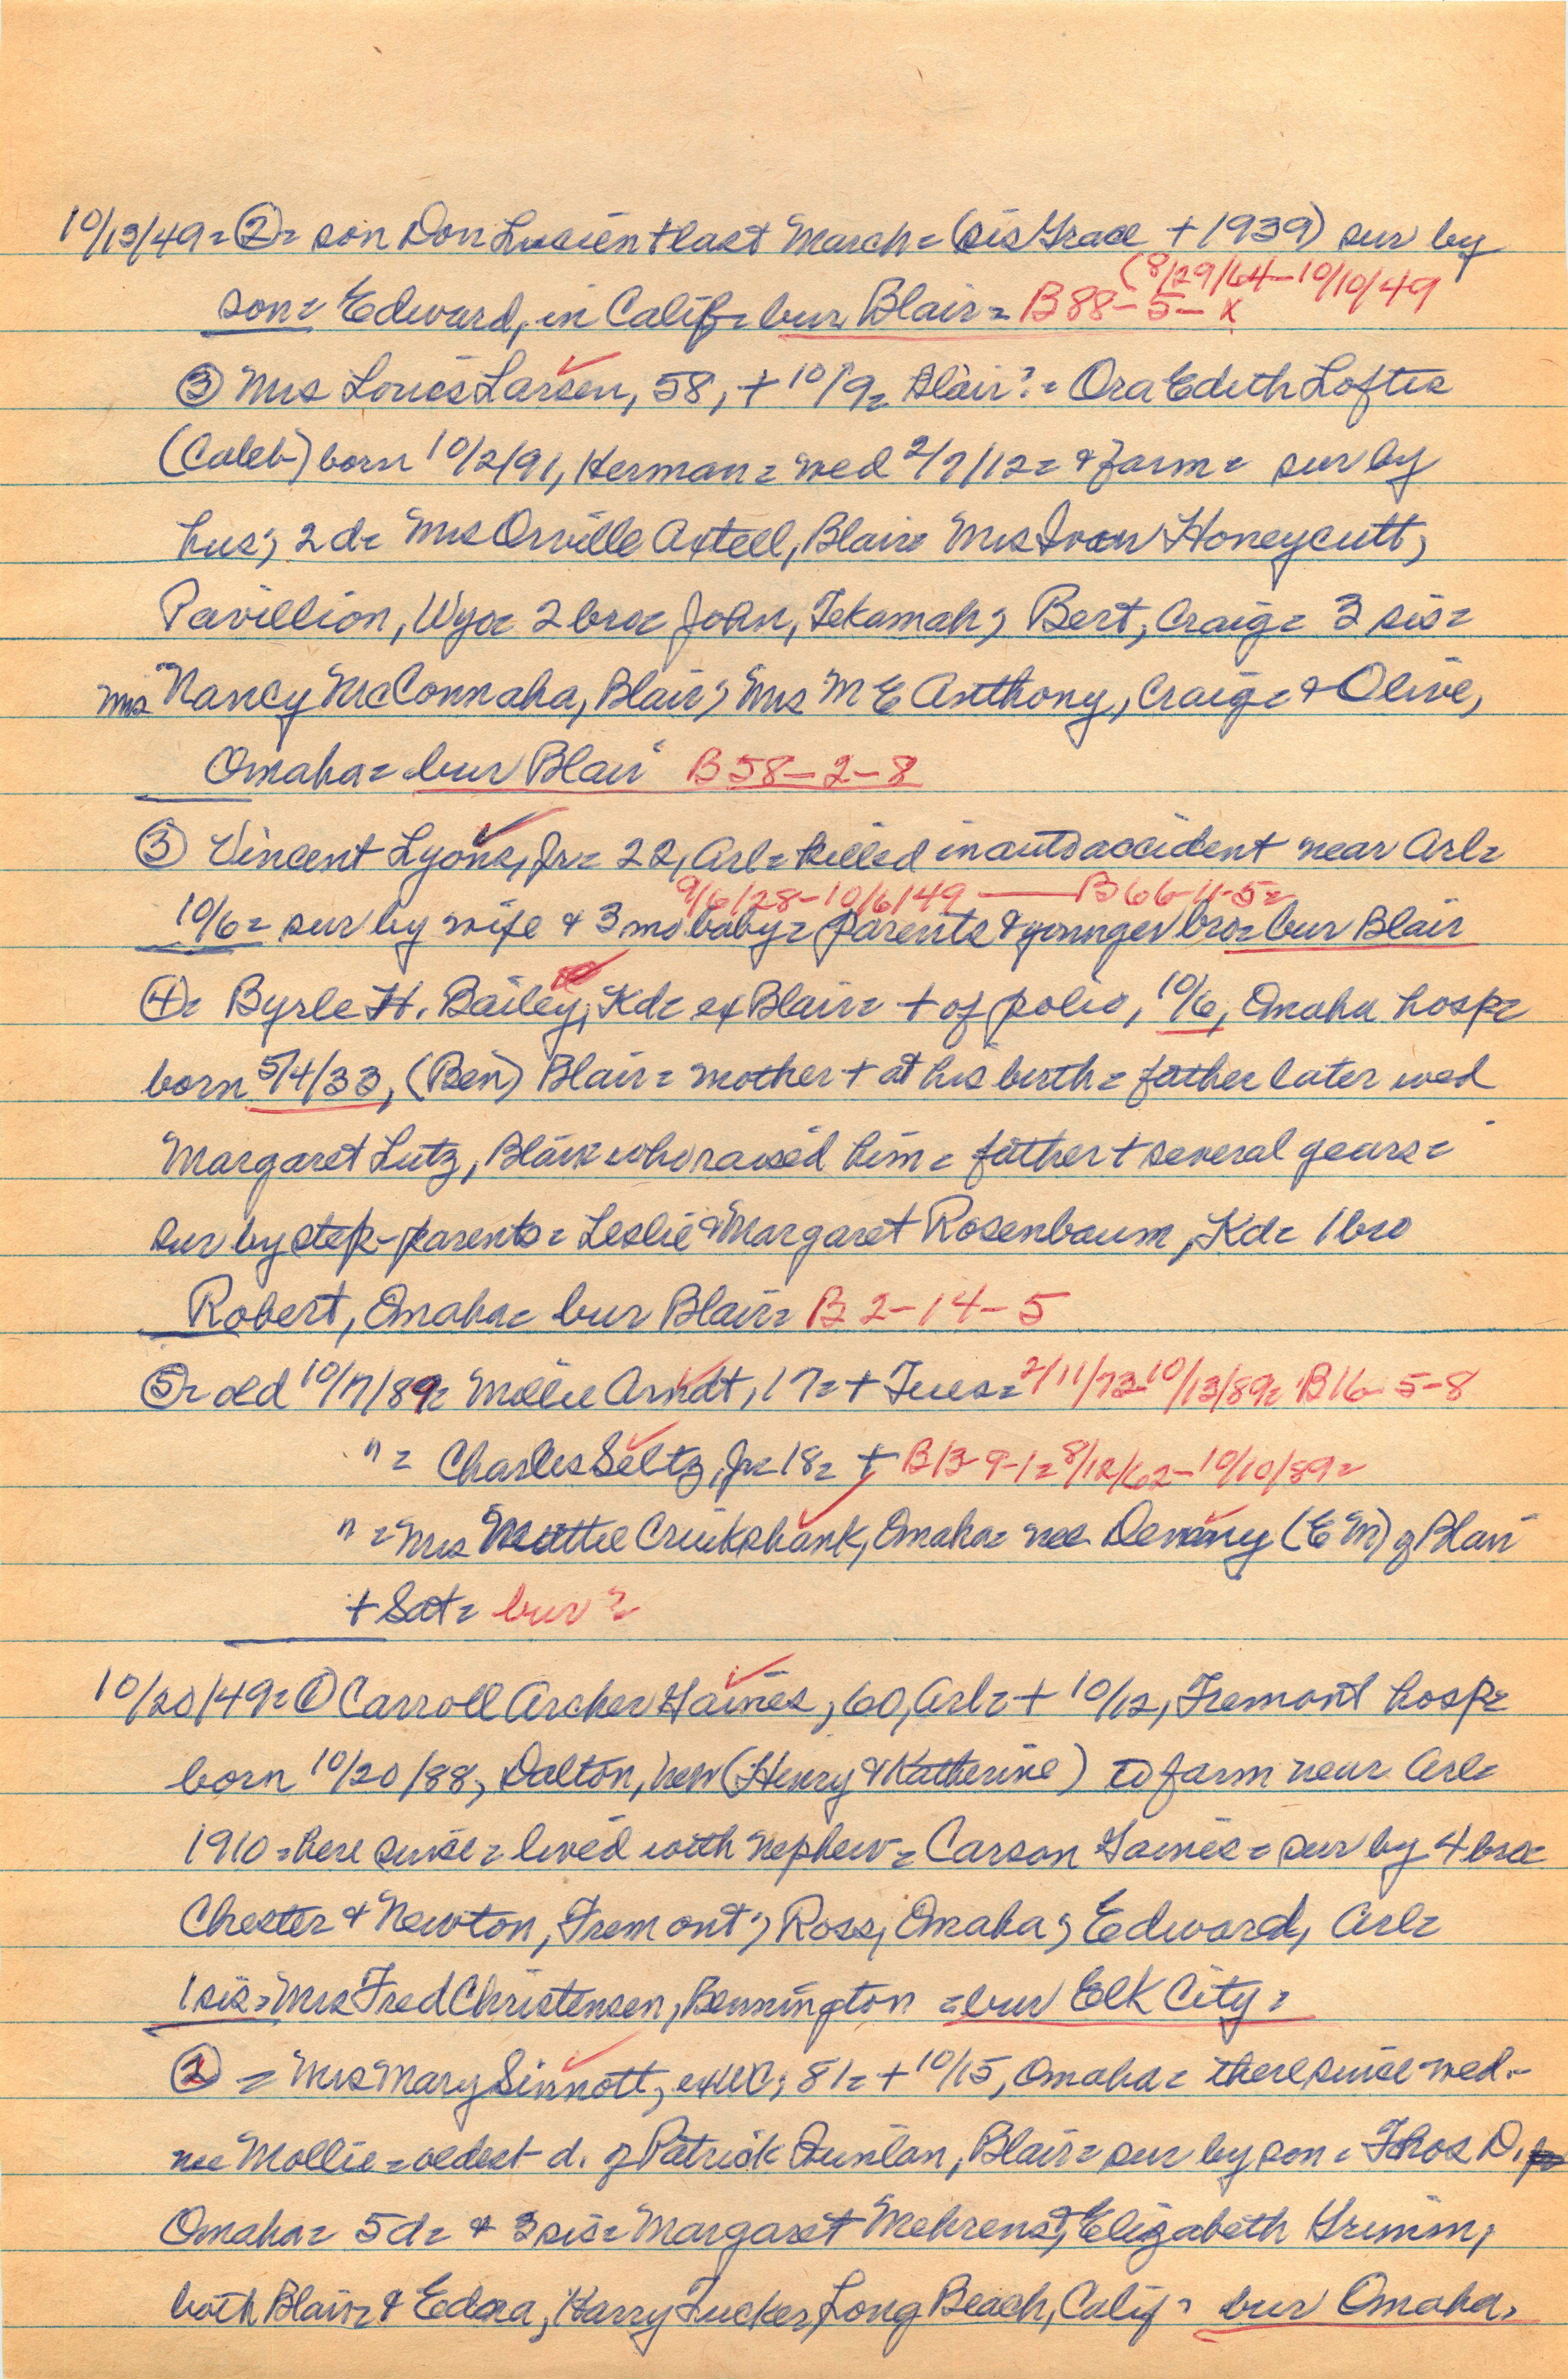 10/13/49 = ② = son Don Lucien + last March = (sis Grace + 1939) sur by
(8/29/64 - 10/10/49
son = Edward, in Calif = bur Blair = B88-5-x
③ Mrs Louis Larsen, 58, + 10/9 = Blair? = Ora Edith Loftis
(Caleb) born 10/2/91, Herman = wed 2/7/12 = & farm = sur by
hus; 2 d = Mrs Orville Axtell, Blair = Mrs Ivan Honeycutt,
Pavillion, Wyo = 2 bro = John, Tekamah; Bert, Craig = 3 sis =
Mrs Nancy McConnaha, Blair; Mrs M E Anthony, Craig = & Olive,
Omaha = bur Blair B58-2-8
③ Vincent Lyons, Jr = 22, Arl = killed in auto accident near Arl =
9/6/28 - 10/6/49 — B66-11-5 =
10/6 = sur by wife & 3 mo baby = parents & younger bro = bur Blair
④ = Byrle H. Bailey, Kd = ex Blair = + of polio, 10/6, Omaha hosp =
born 5/4/33, (Ben) Blair = mother + at his birth = father later wed
Margaret Lutz, Blair who raised him = father + several years =
sur by step-parents = Leslie & Margaret Rosenbaum, Kd = 1 bro
Robert, Omaha = bur Blair = B 2-14-5
⑤ = old 10/17/89 = Mollie Arndt, 17 = + Tues = 2/11/73 - 10/13/89 = B16-5-8
" = Charles Seltz, Jr = 18 = + B13-9-1 = 8/12/62 - 10/10/89 =
" = Mrs Mattie Cruikshank, Omaha = nee Denny (E M) of Blair
+ Sat = bur?
10/20/49 = ① Carroll Archer Haines, 60, Arl = + 10/12, Fremont hosp =
born 10/20/88, Dalton, (Henry & Katherine) to farm near Arl =
1910 = here since = lived with nephew = Carson Haines = sur by 4 bro =
Chester & Newton, Fremont; Ross, Omaha; Edward, Arl =
1 sis = Mrs Fred Christensen, Bennington = bur Elk City =
② = Mrs Mary Sinnott, ex WC; 81 = + 10/15, Omaha = there since wed -
nee Mollie = oldest d. of Patrick Quinlan, Blair = sur by son = Thos D.
Omaha = 5 d = & 3 sis = Margaret Mehrens, Elizabeth Grimm,
both Blair = & Edna, Harry Tucker, Long Beach, Calif = bur Omaha =